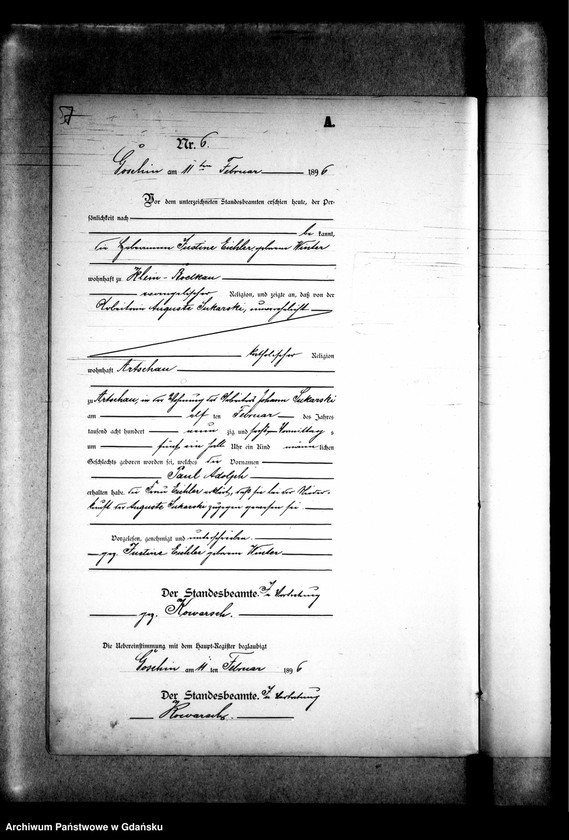 57
A.
Nr. 6.
Goschin am 11ten Februar 1896
Vor dem unterzeichneten Standesbeamten erschien heute, der Per-
sönlichkeit nach
be kannt,
die Hebamme Justine Eichler, geborene Winter
wohnhaft zu Klein-Roelkau
evangelischer Religion, und zeigte an, daß von der
Arbeiterin Auguste Sukarski, unverehelicht
katholischer Religion
wohnhaft Artschau
zu Artschau, in der Wohnung des Arbeiters Johann Sukarski
am elf ten Februar des Jahres
tausend acht hundert neun zig und sechs, Vormittag s
um fünf ein halb Uhr ein Kind männ lichen
Geschlechts geboren worden sei, welches die Vornamen
Paul Adolph
erhalten habe. Die Frau Eichler erklärt, daß sie bei der Nieder-
kunft der Auguste Sukarski zugegen gewesen sei
Vorgelesen, genehmigt und unterschrieben.
gez. Justine Eichler geborene Winter
Der Standesbeamte. In Vertretung
gez. Kowarsch.
Die Uebereinstimmung mit dem Haupt-Register beglaubigt
Goschin am 11 ten Februar 1896
Der Standesbeamte. In Vertretung
Kowarsch.
Archiwum Państwowe w Gdańsku